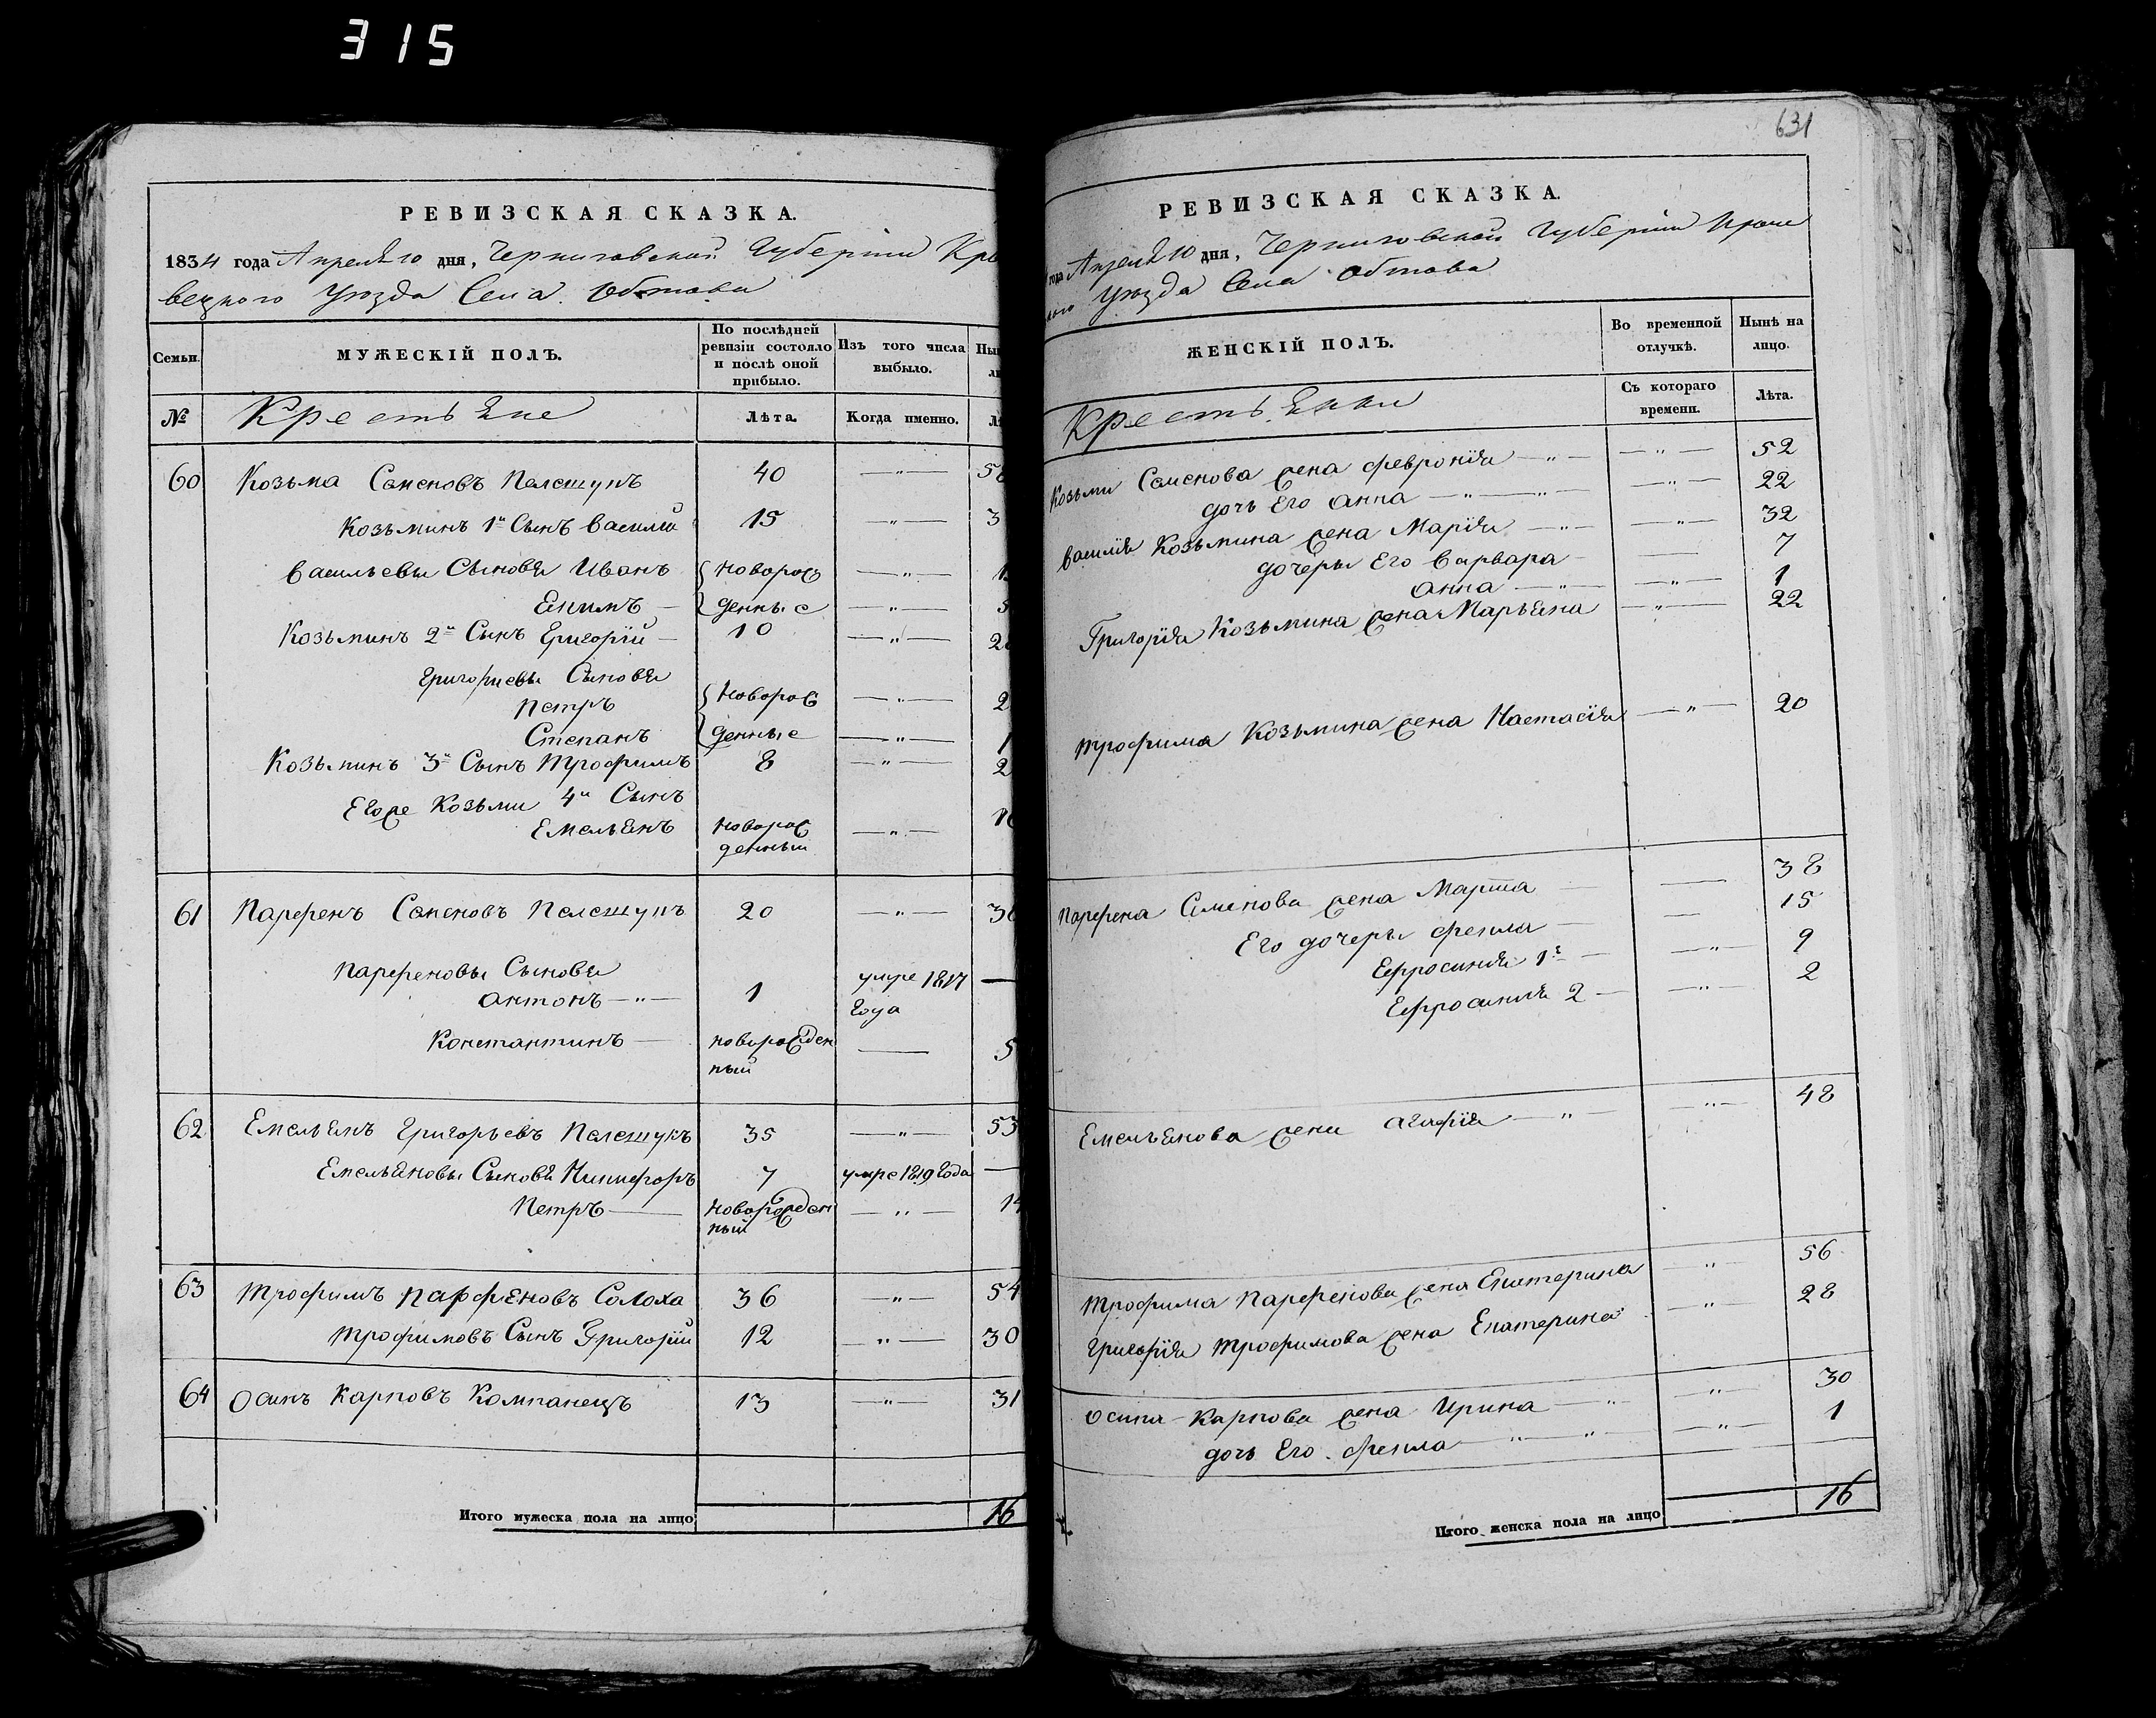 315
РЕВИЗСКАЯ СКАЗКА.
1834 года Апреля 10 дня, Черниговской Губернии Кро
вецкого Уезда Села Обтова
Семьи.
МУЖЕСКІЙ ПОЛЪ.
По послѣдней ревизіи состояло и послѣ оной прибыло.
Изъ того числа выбыло.
Ны
ли
№
Крестьяне
Лѣта.
Когда именно.
Лѣ
60 Козьма Семеновъ Пелешукъ 40 —"— 58
Козьминъ 1й Сынъ Василій 15 "— 3
Васильевы Сыновя Иванъ Новорож —"— 1
Екимъ — денные —"— 5
Козьминъ 2й Сынъ Григорій — 10 —"— 28
Григориевы Сыновя
Петръ Новорож —"— 2
Степанъ денные —"— 1
Козьминъ 3й Сынъ Трофимъ 8 —"— 2
Егоже Козьми 4й Сынъ
Емельянъ новорож —"— 16
денный
61 Парфенъ Семеновъ Пелешукъ 20 —"— 38
Парфеновы Сыновя умре 1817 —
Антонъ —"— 1 года
Константинъ — новорожден — 5
ный
62 Емельянъ Григорьевъ Пелешукъ 35 —"— 53
Емельяновы Сыновя Никифоръ 7 умре 1819 года —
Петръ — Новорожден —"— 14
ный
63 Трофимъ Парфеновъ Солоха 36 —"— 54
Трофимовъ Сынъ Григорій 12 "— 30
64 Осипъ Карповъ Компанецъ 13 —"— 31
Итого мужеска пола на лицо 16
631
РЕВИЗСКАЯ СКАЗКА.
года Апреля 10 дня, Черниговской Губернии Кроле
кого Уезда Села Обтова
ЖЕНСКІЙ ПОЛЪ.
Во временной отлучкѣ.
Нынѣ на лицо.
Крестьянки
Съ котораго времени.
Лѣта.
Козьми Семенова жена Феврония —"— —"— 52
дочь Его Анна —"— "— —"— 22
Василія Козьмина жена Марія —"— —"— 32
дочеры Его Варвара — — 7
Анна —"— —"— 1
Григорія Козьмина жена Марьяна —"— 22
Трофима Козьмина жена Настасія —"— 20
Парфена Семенова жена Марта — — 38
Его дочеры Фекла — — 15
Ефросинія 1я — —"— 9
Ефросинія 2 — —"— 2
Емельянова жена Агафія —"— —"— 48
Трофима Парфенова жена Екатерина "— 56
Григорія Трофимова жена Екатерина —"— 28
Осипа Карпова жена Ирина —"— —"— 30
дочь Его Фекла —"— "— —"— 1
Итого женска пола на лицо 16